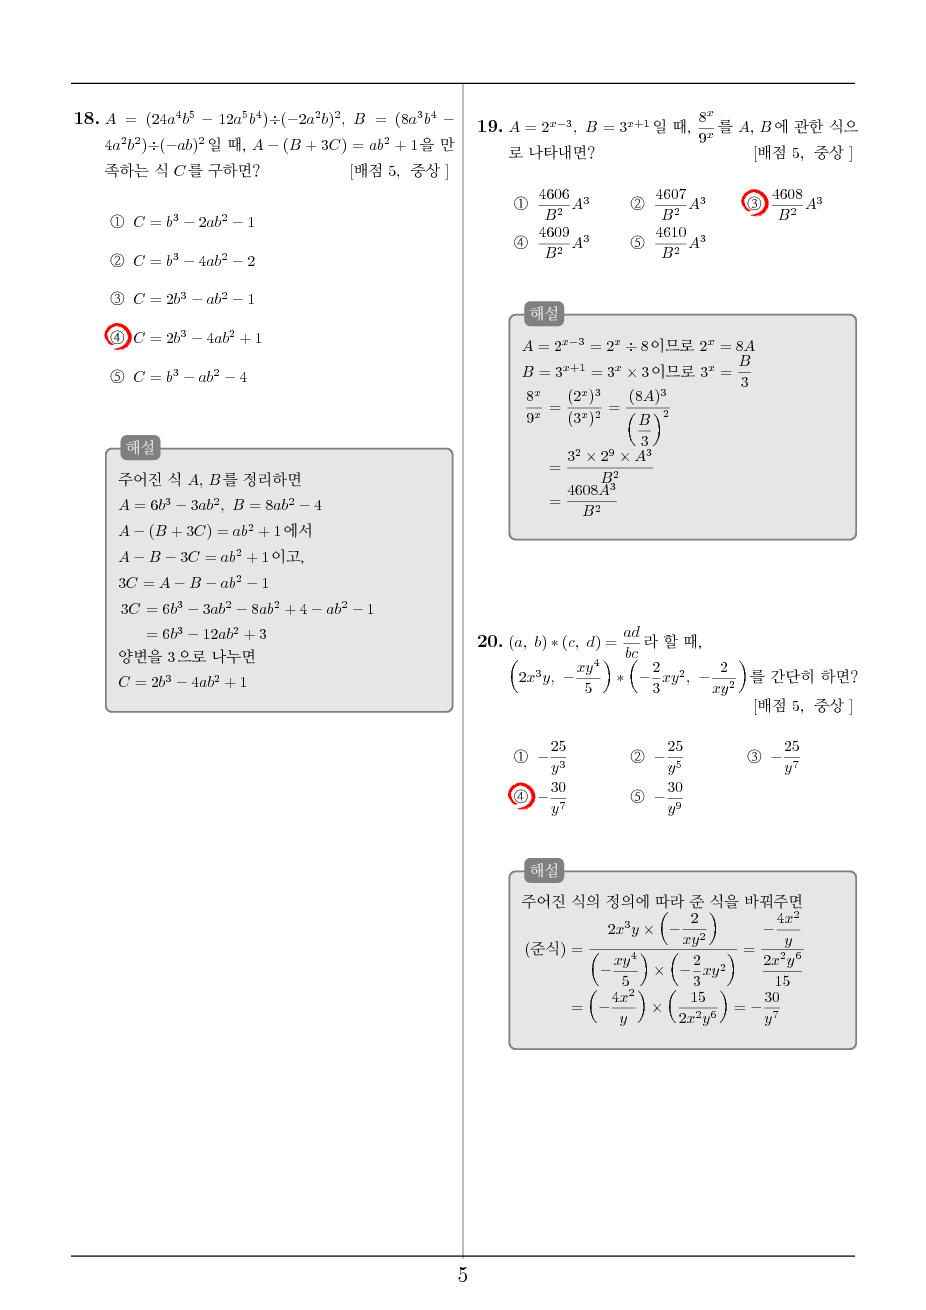 18. A = (24a⁴b⁵ − 12a⁵b⁴)÷(−2a²b)², B = (8a³b⁴ −
4a²b²)÷(−ab)²일 때, A − (B + 3C) = ab² + 1을 만
족하는 식 C를 구하면? [배점 5, 중상 ]
① C = b³ − 2ab² − 1
② C = b³ − 4ab² − 2
③ C = 2b³ − ab² − 1
④ C = 2b³ − 4ab² + 1
⑤ C = b³ − ab² − 4
해설
주어진 식 A, B를 정리하면
A = 6b³ − 3ab², B = 8ab² − 4
A − (B + 3C) = ab² + 1에서
A − B − 3C = ab² + 1이고,
3C = A − B − ab² − 1
3C = 6b³ − 3ab² − 8ab² + 4 − ab² − 1
= 6b³ − 12ab² + 3
양변을 3으로 나누면
C = 2b³ − 4ab² + 1
19. A = 2^(x−3), B = 3^(x+1)일 때, 8^x/9^x를 A, B에 관한 식으
로 나타내면? [배점 5, 중상 ]
① 4606/B² A³ ② 4607/B² A³ ③ 4608/B² A³
④ 4609/B² A³ ⑤ 4610/B² A³
해설
A = 2^(x−3) = 2^x ÷ 8이므로 2^x = 8A
B = 3^(x+1) = 3^x × 3이므로 3^x = B/3
8^x/9^x = (2^x)³/(3^x)² = (8A)³/(B/3)²
= 3² × 2⁹ × A³/B²
= 4608A³/B²
20. (a, b) ∗ (c, d) = ad/bc라 할 때,
(2x³y, −xy⁴/5) ∗ (−2/3 xy², −2/xy²)를 간단히 하면?
[배점 5, 중상 ]
① −25/y³ ② −25/y⁵ ③ −25/y⁷
④ −30/y⁷ ⑤ −30/y⁹
해설
주어진 식의 정의에 따라 준 식을 바꿔주면
(준식) = 2x³y × (−2/xy²) / (−xy⁴/5) × (−2/3 xy²) = −4x²/y / 2x²y⁶/15
= (−4x²/y) × (15/2x²y⁶) = −30/y⁷
5